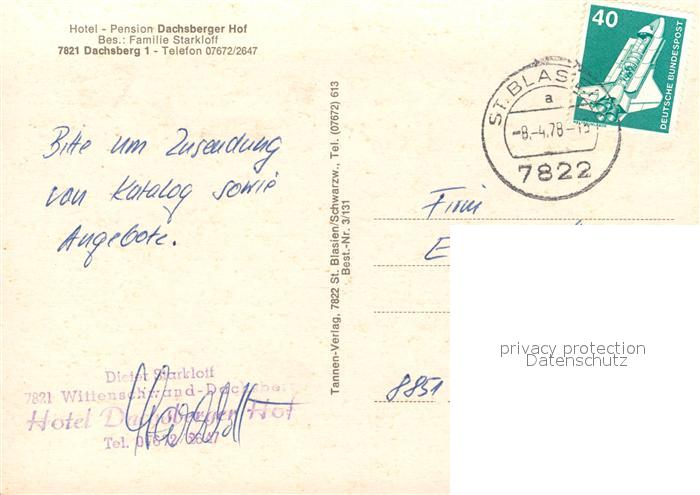 Hotel - Pension Dachsberger Hof
Bes.: Familie Starkloff
7821 Dachsberg 1 - Telefon 07672/2647
40
DEUTSCHE BUNDESPOST
ST. BLAS
a
-8.-4.78-
7822
Bitte um Zusendung
von Katalog sowie
Angebote.
Tannen-Verlag, 7822 St. Blasien/Schwarzw., Tel. (07672) 613
Best.-Nr. 3/131
Firm
E
8851
privacy protection
Datenschutz
Dieter Starkloff
7821 Wittenschwand-Dachsberg
Hotel Dachsberger Hof
Tel. 07672/2647